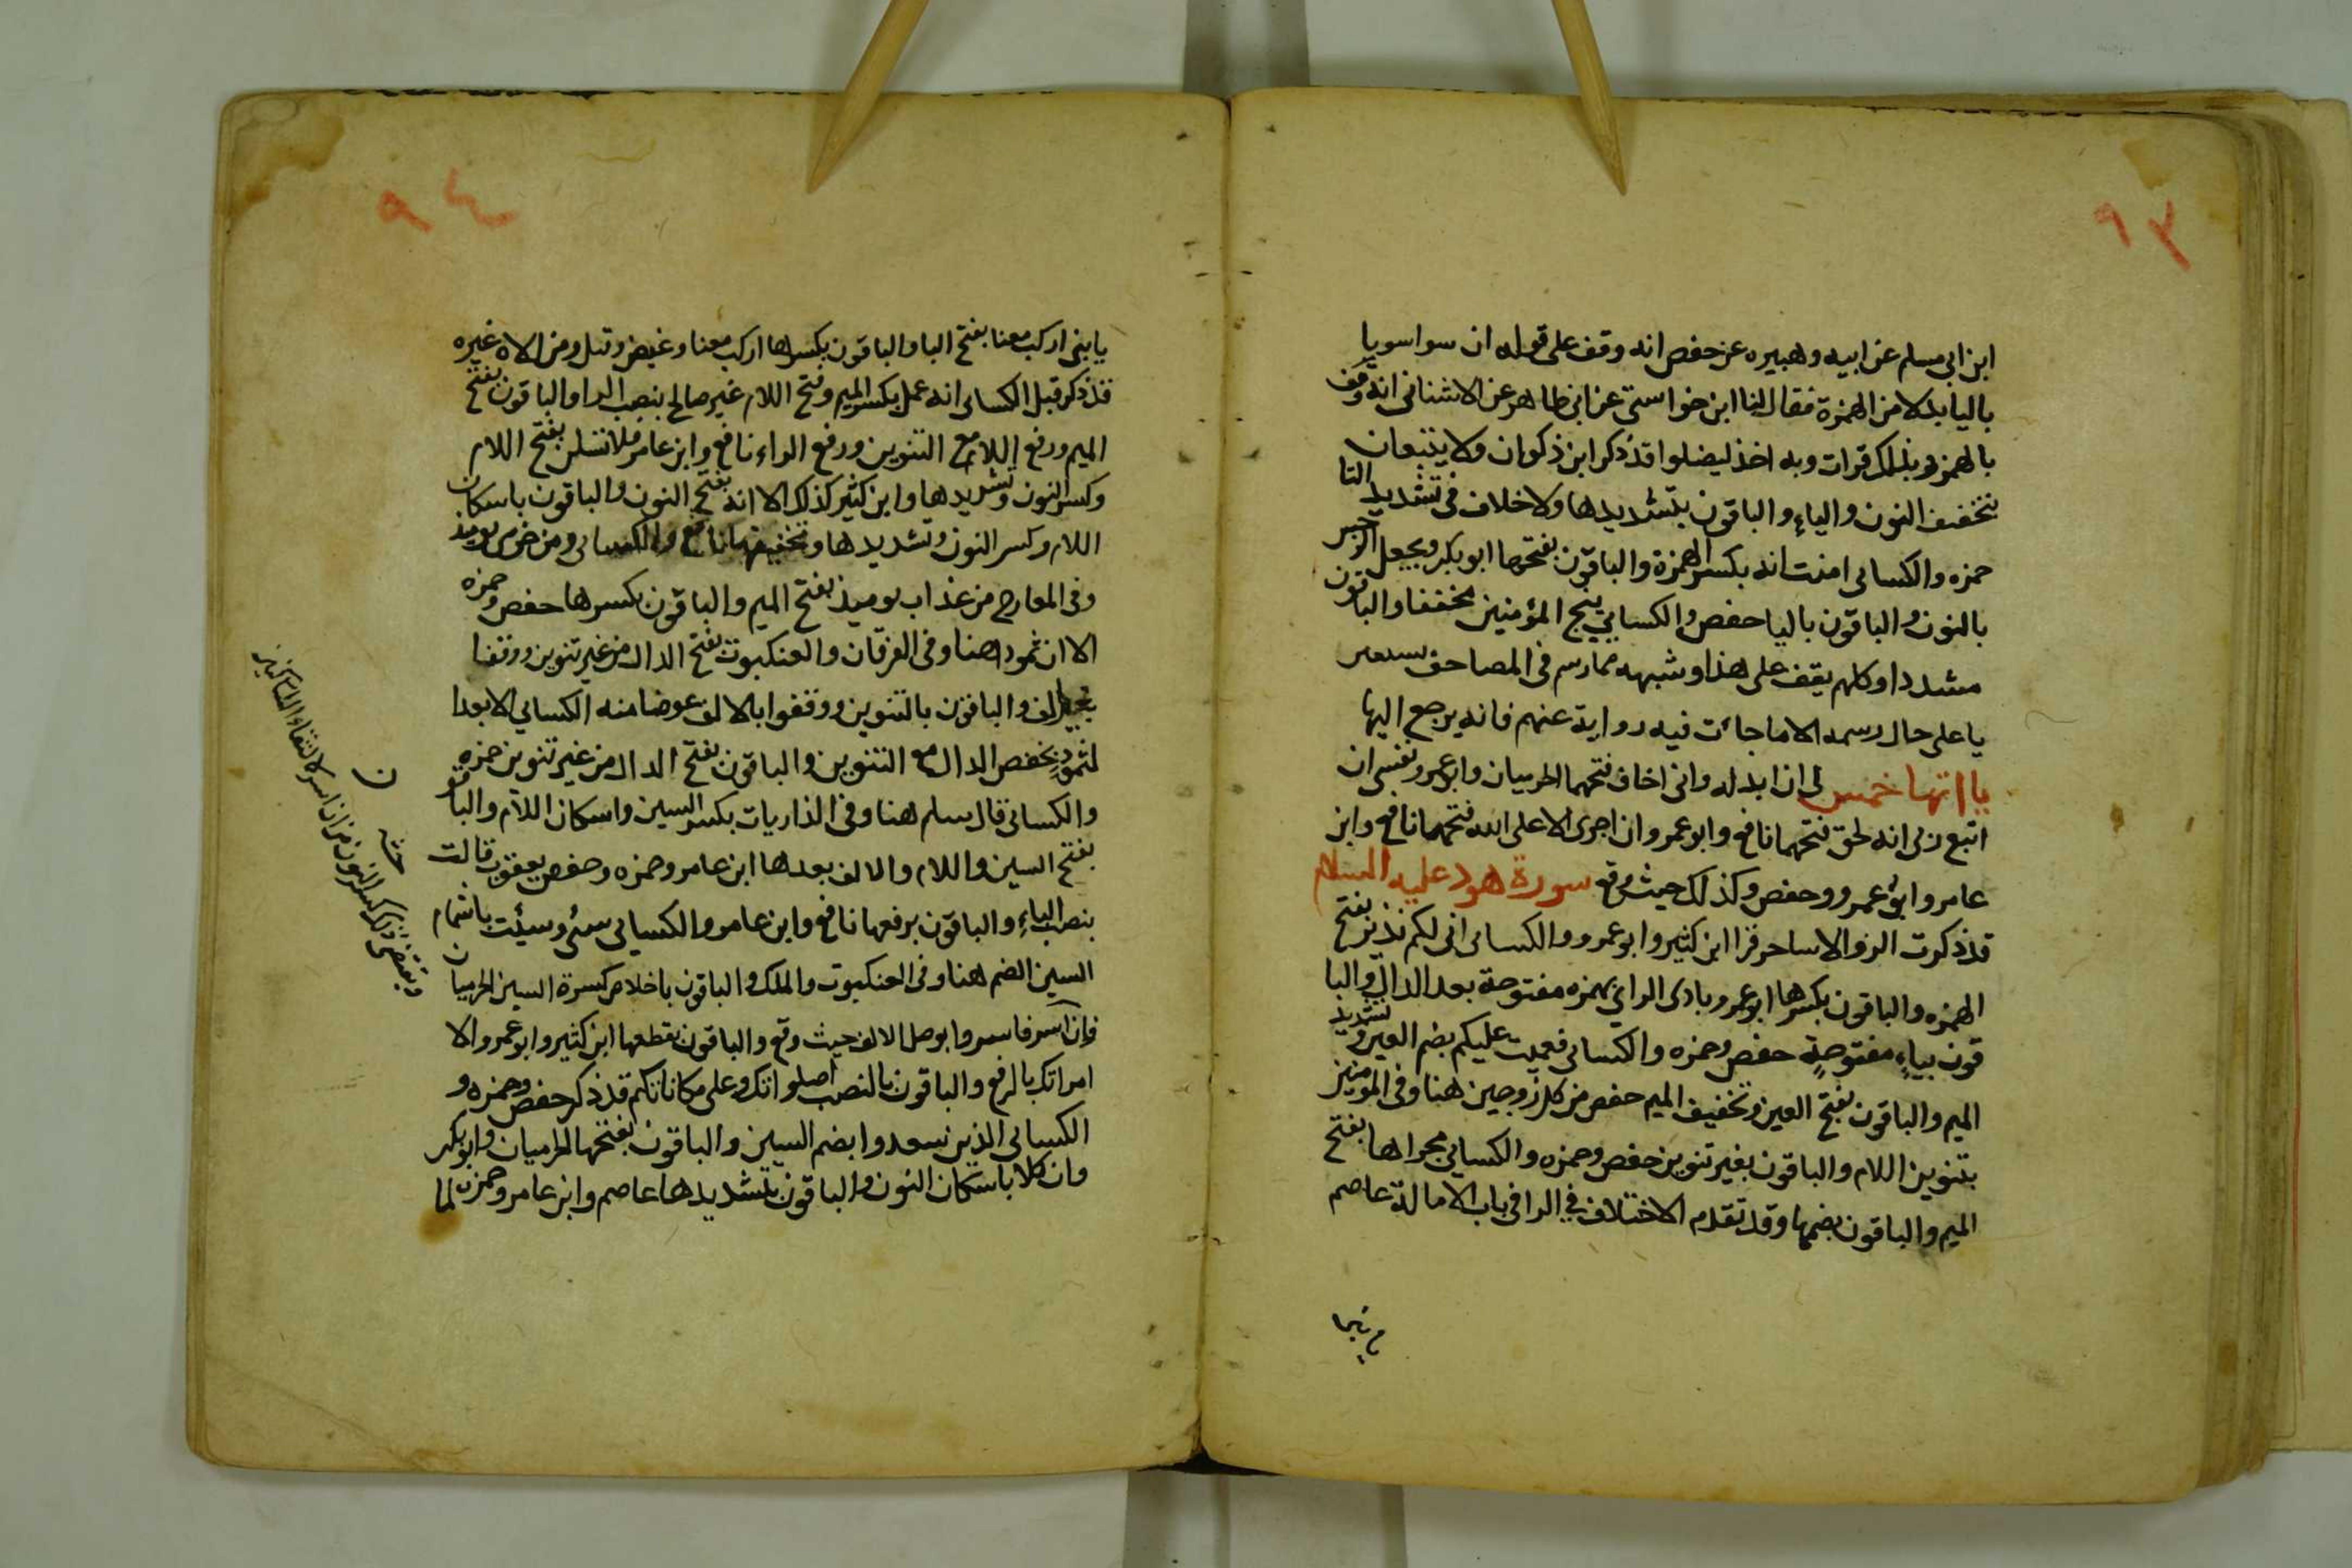 ٩٣
ابن ابى مسلم عن ابيه وهبيره عن حفص انه وقف على قوله ان سواسويا
باليا بدلا من الهمزة فقال لنا ابن خواستى عن ابى طاهر عن الاشنانى انه وقف
بالهمز وبذلك قرات وبه اخذ ليضلوا قد ذكر ابن ذكوان ولا يتبعان
بتخفيف النون والياء والباقون بتشديدها ولا خلاف فى تشديد التا
حمزه والكسائى امنت انه بكسر الهمزة والباقون بفتحها ابو بكر ويجعل الرجس
بالنون والباقون باليا حفص والكسايى ينج المؤمنين مخففا والباقون
مشددا وكلهم يقف على هذا وشبهه مما رسم فى المصاحف بغير
يا على حال رسمه الا ما جائت فيه رواية عنهم فانه يرجع اليها
يااتها خمس لى ان ابدله وانى اخاف فتحهما الحرميان وابو عمرو نفسى ان
اتبع ربى انه لحق فتحهما نافع وابو عمرو ان اجرى الا على الله فتحهما نافع وابن
عامر وابو عمرو وحفص وكذلك حيث وقع سورة هود عليه السلام
قد ذكرت الر والا ساحر قرا ابن كثير وابو عمرو والكسائى انى لكم نذير بفتح
الهمزه والباقون بكسرها ابو عمرو بادى الراى بهمزه مفتوحة بعد الدال والبا
قون بياء مفتوحة حفص وحمزه والكسائى فعميت عليكم بضم العين وتشديد
الميم والباقون بفتح العين وتخفيف الميم حفص من كل زوجين هنا وفى المومنين
بتنوين اللام والباقون بغير تنوين حفص وحمزه والكسايى مجراها بفتح
الميم والباقون بضمها وقد تقدم الاختلاف في الرا فى باب الامالة عاصم
٩٤
يابنى اركب معنا بفتح اليا والباقون بكسرها اركب معنا وغيض وقيل ومن الاه غيره
قد ذكر قبل الكسائى انه عمل بكسر الميم وفتح اللام غير صالح بنصب الرا والباقون بفتح
الميم ورفع اللام مع التنوين ورفع الراء نافع وابن عامر فلا تسئلن بفتح اللام
وكسر النون وتشديدها وابن كثير كذلك الا انه بفتح النون والباقون باسكان
اللام وكسر النون وتشديدها وتخفيفها نافع والكسائى ومن خزى يوميذ
وفى المعارج من عذاب يوميذ بفتح الميم والباقون بكسرها حفص وحمزه
الا ان ثمودا هنا وفى الفرقان والعنكبوت بفتح الدال من غير تنوين ووقفا
بغير الف والباقون بالتنوين ووقفوا بالالف عوضا منه الكسايى الا بعدا
لثمود بخفض الدال مع التنوين والباقون بفتح الدال من غير تنوين حمزه
والكسائى قال سلم هنا وفى الذاريات بكسر السين واسكان اللام والباقون
بفتح السين واللام والالف بعدها ابن عامر وحمزه وحفص يعقوب قالت
بنصب الباء والباقون برفعها نافع وابن عامر والكسايى سئ وسيئت باشمام
السين الضم هنا وفى العنكبوت والملك والباقون باخلاص كسرة السين الحرميان
فان اسر فاسر وابوصل الالف حيث وقع والباقون بقطعها ابن كثير وابو عمرو الا
امراتك بالرفع والباقون بالنصب اصلواتك وعلى مكاناتكم قد ذكر حفص وحمزه و
الكسائى الذين سعدوا بضم السين والباقون بفتحها الحرميان وابو بكر
وان كلا باسكان النون والباقون بتشديدها عاصم وابن عامر وحمزه لما